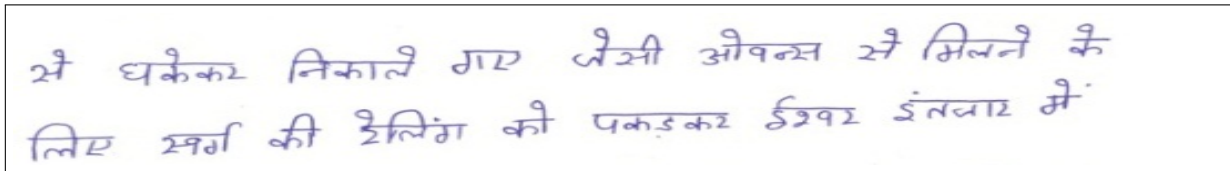 से धकेकर निकाले गए जेसी ओवन्स से मिलने के
लिए स्वर्ग की रेलिंग को पकड़कर ईश्वर इंतजार में